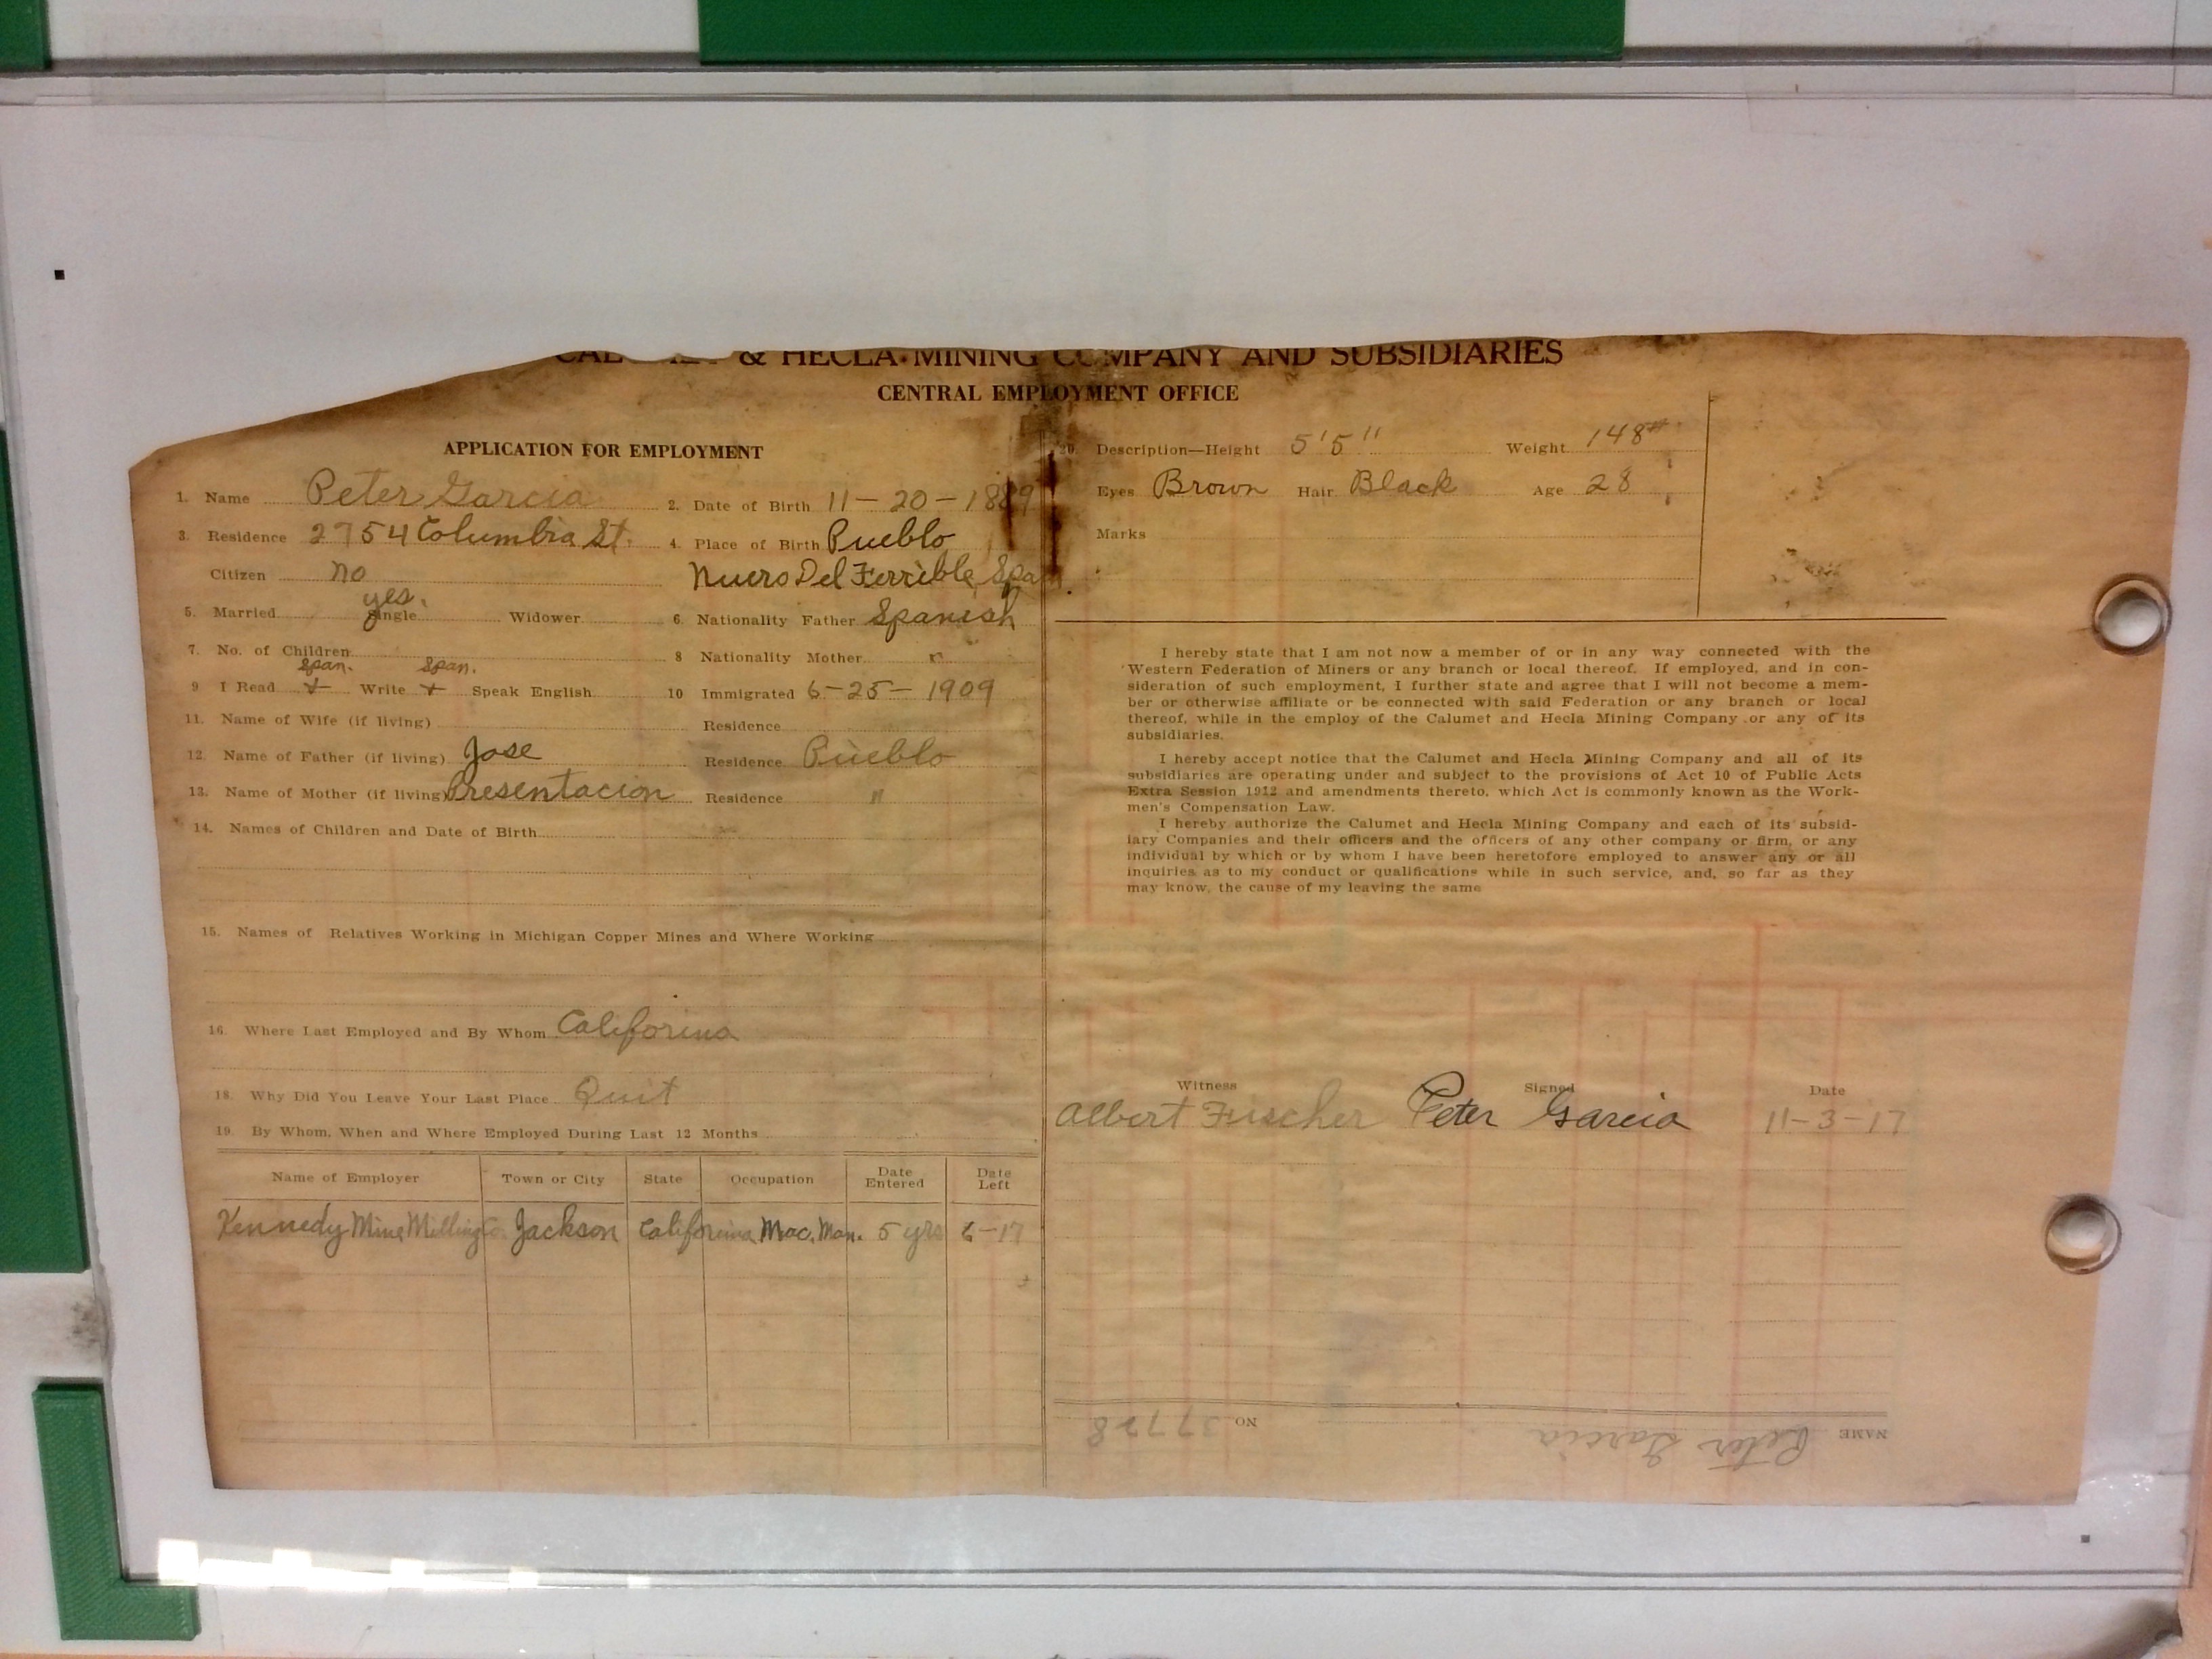 & HECLA MINING COMPANY AND SUBSIDIARIES
CENTRAL EMPLOYMENT OFFICE
APPLICATION FOR EMPLOYMENT
1. Name Peter Garcia
2. Date of Birth 11-20-1889
3. Residence 2754 Columbia St.
4. Place of Birth Pueblo
Citizen no
Nuero Del Ferrible, Spa
yes.
5. Married Single Widower
6. Nationality Father Spanish
7. No. of Children
8 Nationality Mother "
Span. Span.
9 I Read + Write + Speak English
10 Immigrated 6-25-1909
11. Name of Wife (if living)
Residence
12 Name of Father (if living) Jose
Residence Pueblo
13. Name of Mother (if living) Presentacion
Residence "
14. Names of Children and Date of Birth
15. Names of Relatives Working in Michigan Copper Mines and Where Working
16. Where Last Employed and By Whom California
18. Why Did You Leave Your Last Place Quit
19. By Whom, When and Where Employed During Last 12 Months
Name of Employer Town or City State Occupation Date Entered Date Left
Kennedy Mine Milling Co. Jackson California Mac. Man. 5 yrs 6-17
20. Description—Height 5'5" Weight 148#
Eyes Brown Hair Black Age 28
Marks
I hereby state that I am not now a member of or in any way connected with the
Western Federation of Miners or any branch or local thereof. If employed, and in con-
sideration of such employment, I further state and agree that I will not become a mem-
ber or otherwise affiliate or be connected with said Federation or any branch or local
thereof, while in the employ of the Calumet and Hecla Mining Company or any of its
subsidiaries.
I hereby accept notice that the Calumet and Hecla Mining Company and all of its
subsidiaries are operating under and subject to the provisions of Act 10 of Public Acts
Extra Session 1912 and amendments thereto, which Act is commonly known as the Work-
men's Compensation Law.
I hereby authorize the Calumet and Hecla Mining Company and each of its subsid-
iary Companies and their officers and the officers of any other company or firm, or any
individual by which or by whom I have been heretofore employed to answer any or all
inquiries as to my conduct or qualifications while in such service, and, so far as they
may know, the cause of my leaving the same
Witness Signed Date
Albert Fischer Peter Garcia 11-3-17
NAME Peter Garcia NO 37728